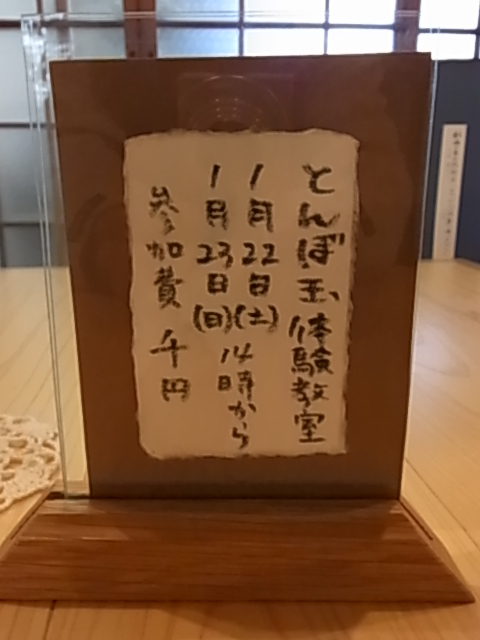 とんぼ玉体験教室
1月22日(土)
1月23日(日)
14時から
参加費 千円